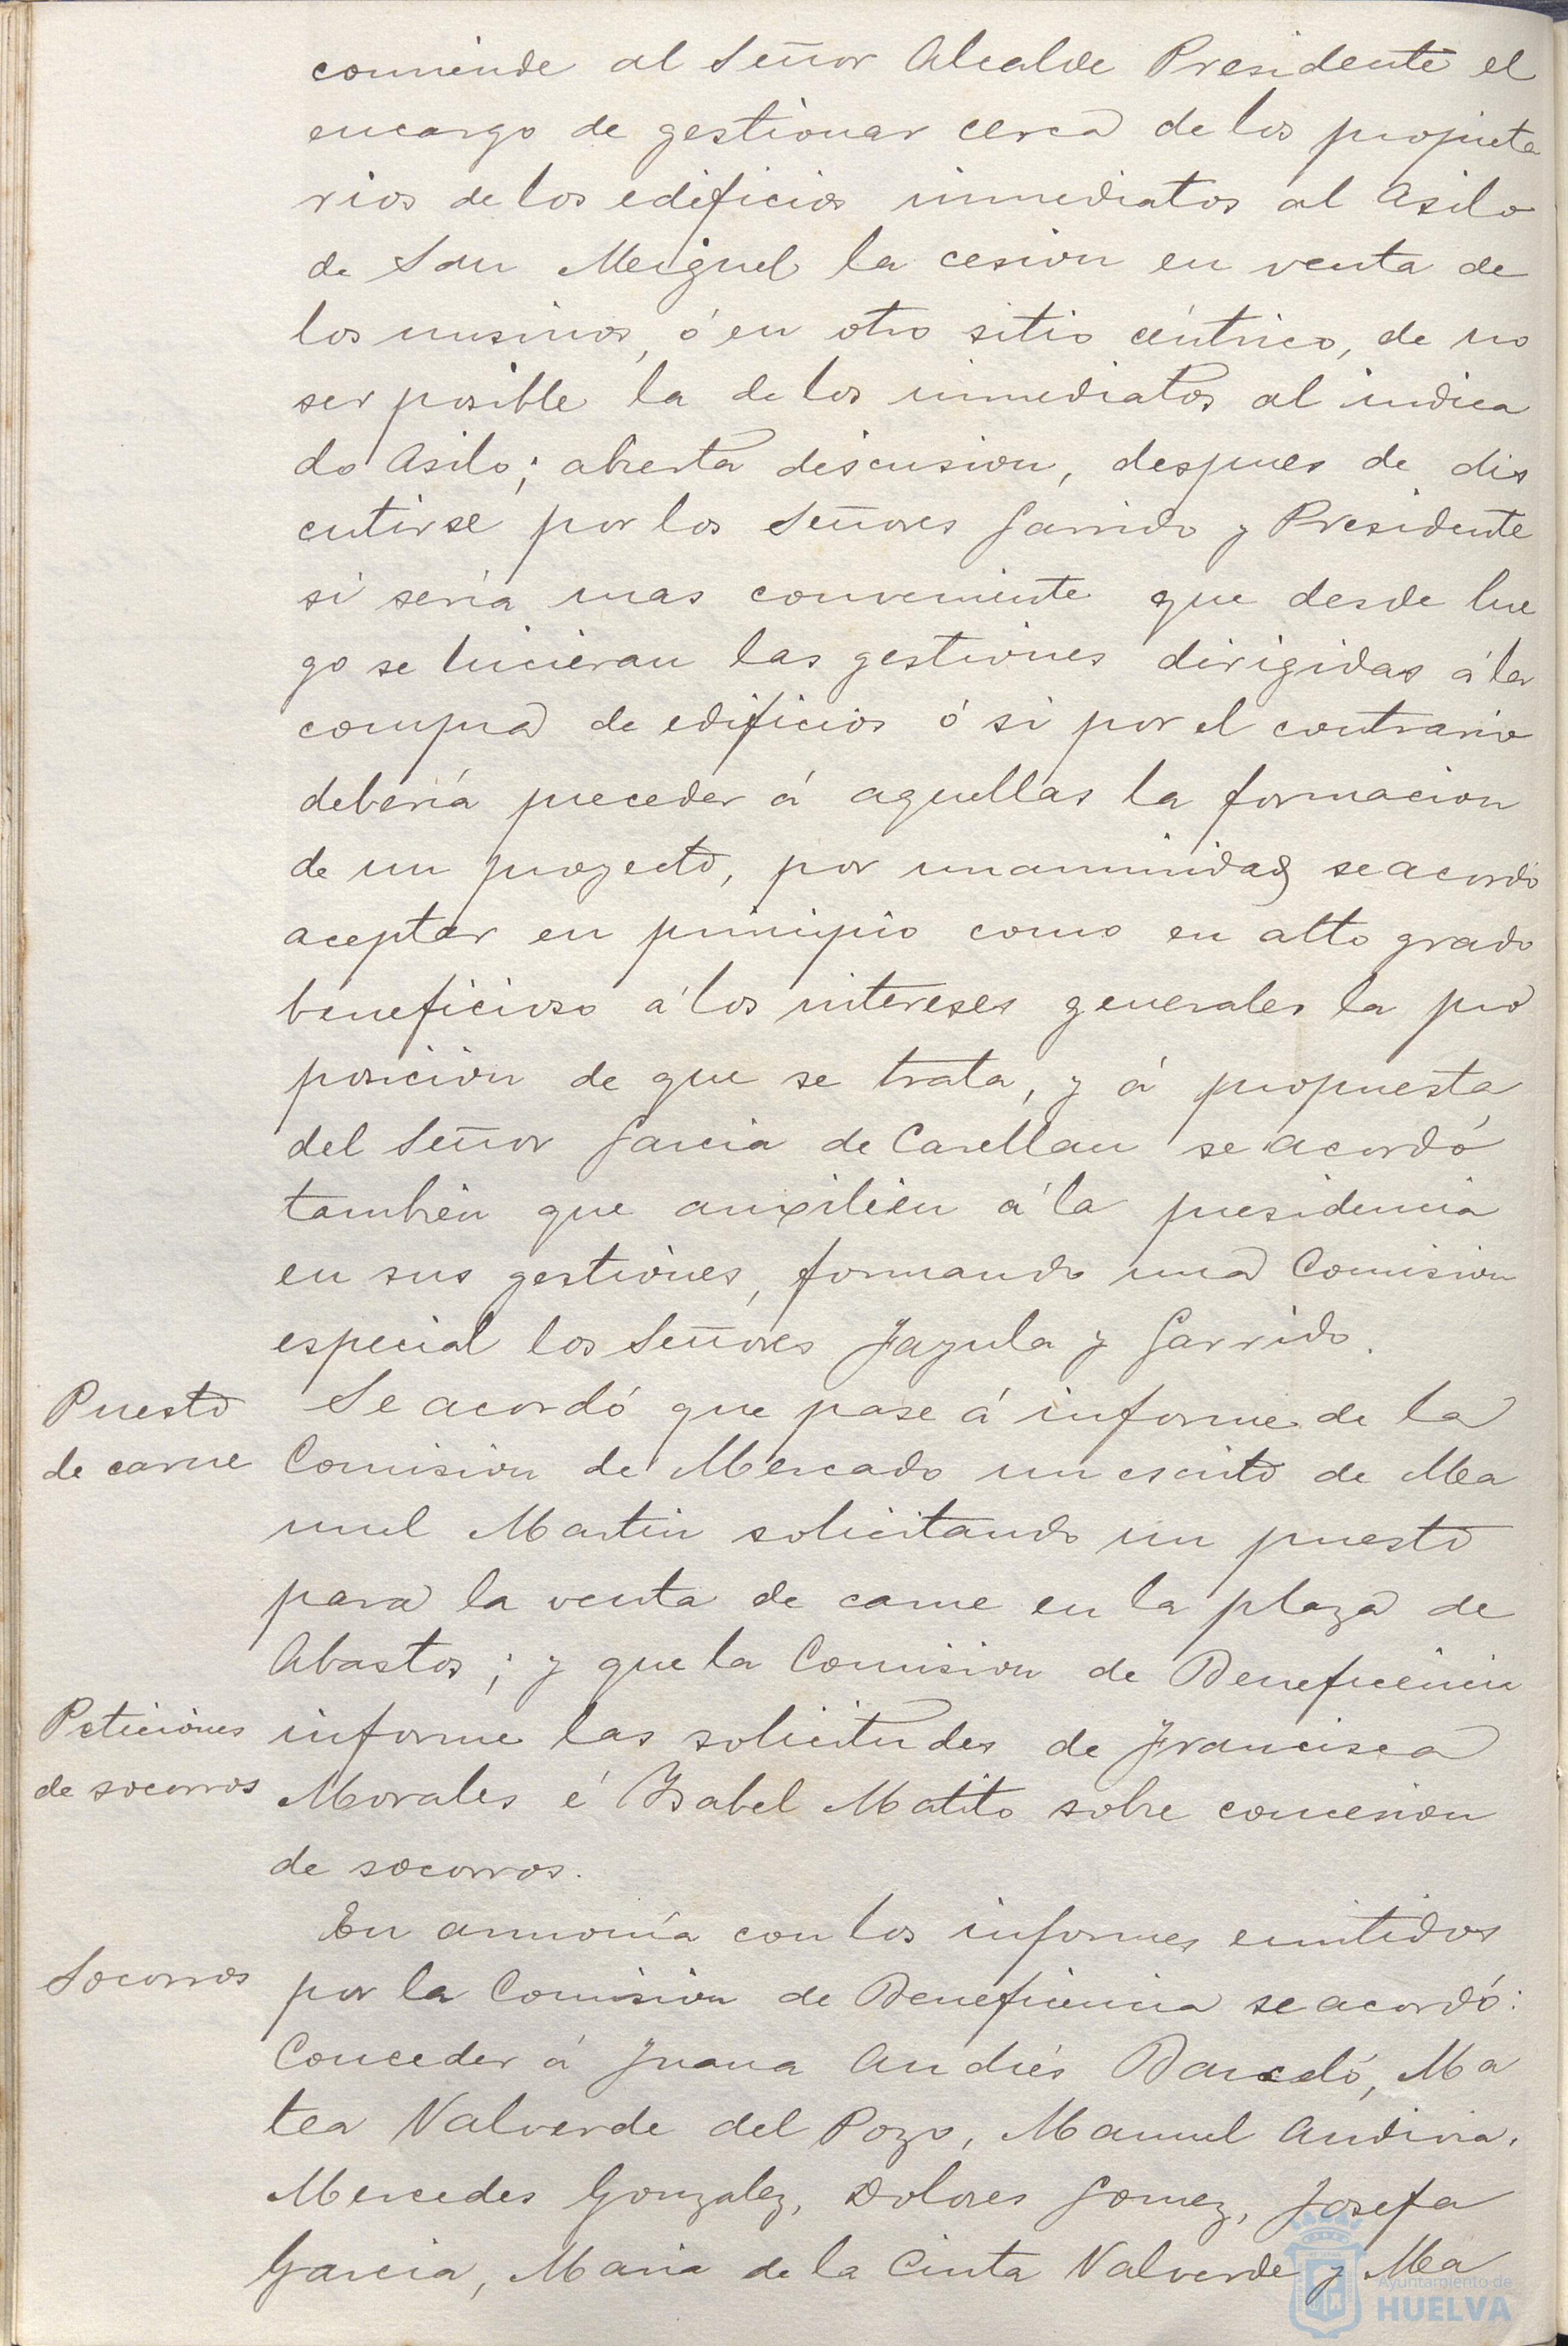 comiende al Señor Alcalde Presidente el
encargo de gestionar cerca de los propieta
rios de los edificios inmediatos al Asilo
de San Miguel la cesion en venta de
los mismos, ó en otro sitio céntrico, de no
ser posible la de los inmediatos al indica
do Asilo; abierta discusion, despues de dis
cutirse por los Señores Garrido y Presidente
si sería mas conveniente que desde lue
go se hicieran las gestiones dirigidas á la
compra de edificios ó si por el contrario
debería preceder á aquellas la formacion
de un proyecto, por unanimidad se acordó
aceptar en principio como en alto grado
beneficioso á los intereses generales la pro
posicion de que se trata, y á propuesta
del Señor Garcia de Casellan se acordó
tambien que auxilien á la presidencia
en sus gestiones, formando una Comision
especial los Señores Jazula y Garrido.
Puesto
de carne
Se acordó que pase á informe de la
Comision de Mercado un escrito de Ma
nuel Martin solicitando un puesto
para la venta de carne en la plaza de
Abastos; y que la Comision de Beneficencia
Peticiones
de socorros
informe las solicitudes de Francisca
Morales é Ysabel Matito sobre concesion
de socorros.
En armonía con los informes emitidos
Socorros
por la Comision de Beneficencia se acordó:
Conceder á Juana Andrés Barceló, Ma
tea Valverde del Pozo, Manuel Andivia,
Mercedes Gonzalez, Dolores Gomez, Josefa
Garcia, Maria de la Cinta Valverde y Ma
Ayuntamiento de
HUELVA